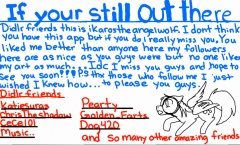 If your still Out there
Didlr friends this is ikarosthe angelwolf. I dont think
you have this app but if you do I really miss you. You
liked me better than anyone here my followers
here are as nice as you guys were but no one likes
my art as much... Idc I miss you guys and hope to
see you soon!!! PS thx those who follow me I just
wished I knew how... to please you guys.
Didlr friends
Katiesuras Pearty
Christheshadow Golden_Farts
Cece101 Dog420
Music.. and so many other amazing friends